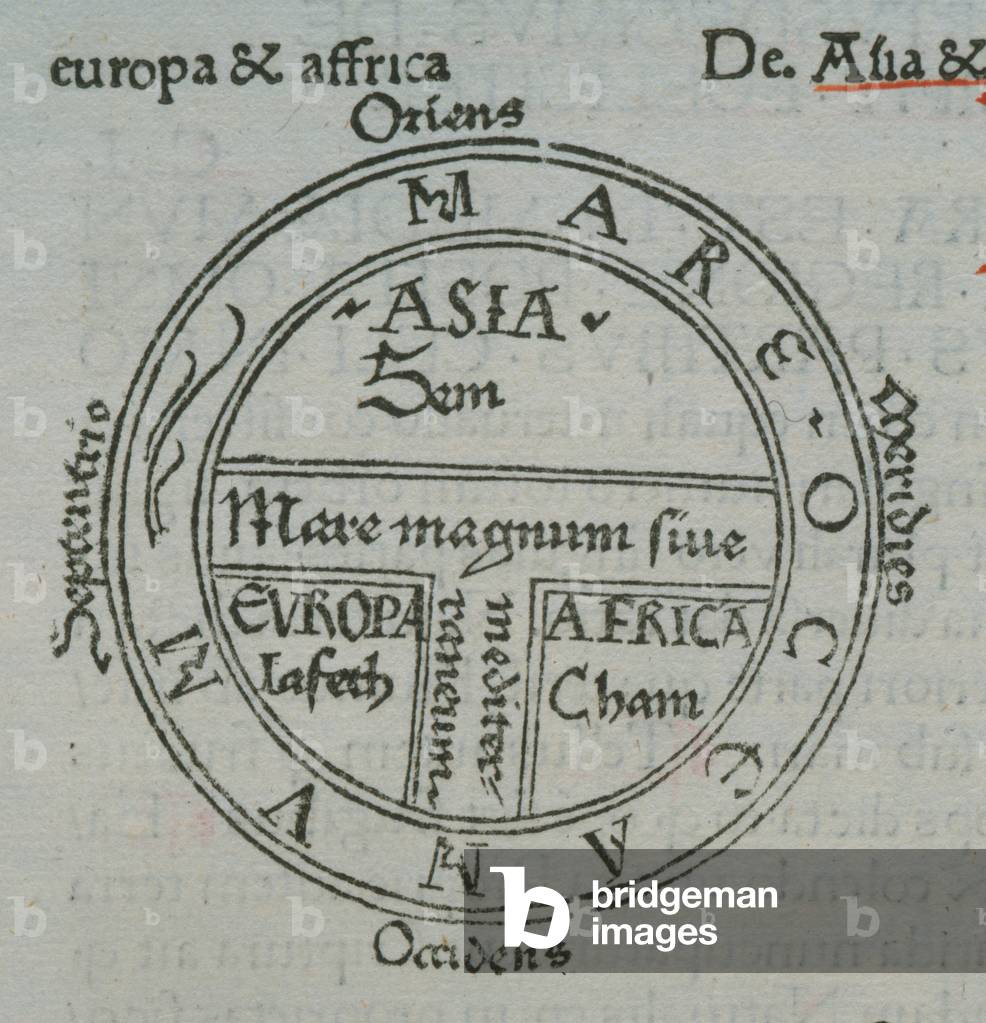 europa & affrica
De. Asia &
Oriens
MARE OCCEANVM
Septentrio
Meridies
ASIA
Sem
Mare magnum siue
EVROPA
Iafeth
mediter
raneum
AFRICA
Cham
Occidens
bridgeman
images